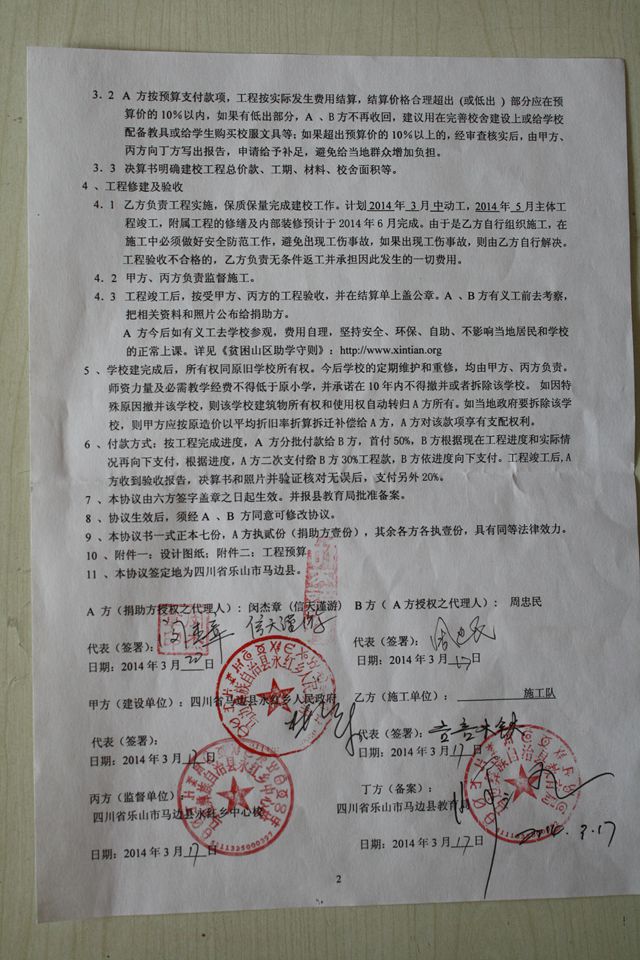 3．2 A 方按预算支付款项，工程按实际发生费用结算，结算价格合理超出 (或低出 ）部分应在预
算价的 10％以内，如果有低出部分，A 、B 方不再收回，建议用在完善校舍建设上或给学校
配备教具或给学生购买校服文具等；如果超出预算价的 10％以上的，经审查核实后，由甲方、
丙方向丁方写出报告，申请给予补足，避免给当地群众增加负担。
3．3 决算书明确建校工程总价款、工期、材料、校舍面积等。
4 、工程修建及验收
4．1 乙方负责工程实施，保质保量完成建校工作。计划 2014 年 3 月 中动工，2014 年 5 月主体工
程竣工，附属工程的修缮及内部装修预计于 2014 年 6 月完成。由于是乙方自行组织施工，在
施工中必须做好安全防范工作，避免出现工伤事故，如果出现工伤事故，则由乙方自行解决。
工程验收不合格的，乙方负责无条件返工并承担因此发生的一切费用。
4．2 甲方、丙方负责监督施工。
4．3 工程竣工后，按受甲方、丙方的工程验收，并在结算单上盖公章。A 、B 方有义工前去考察，
把相关资料和照片公布给捐助方。
A 方今后如有义工去学校参观，费用自理，坚持安全、环保、自助、不影响当地居民和学校
的正常上课。详见《贫困山区助学守则》：http://www.xintian.org
5 、学校建完成后，所有权同原旧学校所有权。今后学校的定期维护和重修，均由甲方、丙方负责。
师资力量及必需教学经费不得低于原小学，并承诺在 10 年内不得撤并或者拆除该学校。 如因特
殊原因撤并该学校，则该学校建筑物所有权和使用权自动转归 A 方所有。如当地政府要拆除该学
校，则甲方应按原造价以平均折旧率折算拆迁补偿给 A 方，A 方对该款项享有支配权利。
6 、付款方式：按工程完成进度，A 方分批付款给 B 方，首付 50%，B 方根据现在工程进度和实际情
况再向下支付，根据进度，A 方二次支付给 B 方 30%工程款，B 方依进度向下支付。工程竣工后,A
方收到验收报告，决算书和照片并验证核对无误后，支付另外 20%。
7 、本协议由六方签字盖章之日起生效。并报县教育局批准备案。
8 、协议生效后，须经 A 、B 方同意可修改协议。
9 、本协议书一式正本七份，A 方执贰份（捐助方壹份），其余各方各执壹份，具有同等法律效力。
10 、附件一：设计图纸；附件二：工程预算
11 、本协议签定地为四川省乐山市马边县。
A 方（捐助方授权之代理人）：闵杰章（信天谨游） B 方（ A 方授权之代理人）：周忠民
代表（签署）： 闵杰章 信天谨游 代表（签署）： 周忠民
日期：2014 年 3 月 日 日期：2014 年 3 月 17 日
甲方（建设单位）：四川省马边县永红乡人民政府 乙方（施工单位）： 施工队
代表（签署）： 代表（签署）：
日期：2014 年 3 月 17 日 日期：2014 年 3 月 17 日
丙方（监督单位）： 丁方（备案）：
四川省乐山市马边县永红乡中心校 四川省乐山市马边县教育局
2014.3.17
日期：2014 年 3 月 17 日 日期：2014 年 3 月 17 日
2